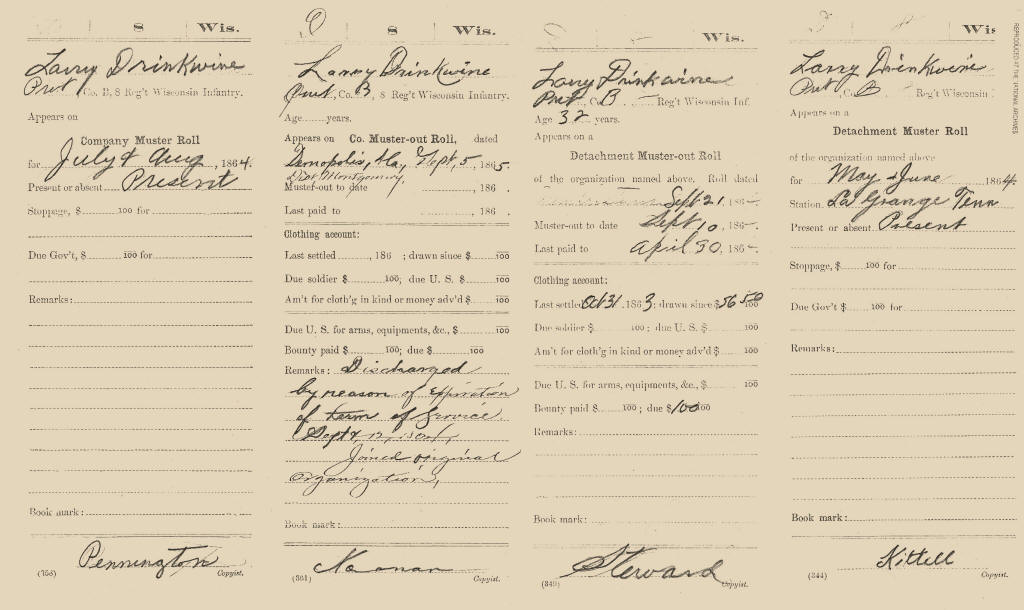 8 Wis.
Larry Drinkwine
Pvt, Co. B, 8 Reg't Wisconsin Infantry.
Appears on
Company Muster Roll
for July & Aug, 1864.
Present or absent Present
Stoppage, $ 100 for
Due Gov't, $ 100 for
Remarks:
Book mark:
Pennington
(358) Copyist.
8 Wis.
Larry Drinkwine
Pvt, Co. B, 8 Reg't Wisconsin Infantry.
Age years.
Appears on Co. Muster-out Roll, dated
Demopolis, Ala, Sept, 5, 1865.
Dist Montgomery,
Muster-out to date , 186 .
Last paid to , 186 .
Clothing account:
Last settled , 186 ; drawn since $ 100
Due soldier $ 100; due U. S. $ 100
Am't for cloth'g in kind or money adv'd $ 100
Due U. S. for arms, equipments, &c., $ 100
Bounty paid $ 100; due $ 100
Remarks: Discharged
by reason of Expiration
of term of Service.
Joined original
organization,
Book mark:
Noonan
(361) Copyist.
Wis.
Larry Drinkwine
Pvt, Co. B Reg't Wisconsin Inf.
Age 32 years.
Appears on a
Detachment Muster-out Roll
of the organization named above. Roll dated
Sept 21, 186
Muster-out to date Sept 10, 186
Last paid to April 30, 186
Clothing account:
Last settled Oct 31, 1863; drawn since $56 50 100
Due soldier $ 100; due U. S. $ 100
Am't for cloth'g in kind or money adv'd $ 100
Due U. S. for arms, equipments, &c., $ 100
Bounty paid $ 100; due $100 100
Remarks:
Book mark:
Steward
(349) Copyist.
Wis
Larry Drinkwine
Pvt, Co. B Reg't Wisconsin
Appears on a
Detachment Muster Roll
of the organization named above
for May & June, 1864.
Station La Grange Tenn
Present or absent Present
Stoppage, $ 100 for
Due Gov't $ 100 for
Remarks:
Book mark:
Kittell
(344) Copyist.
REPRODUCED AT THE NATIONAL ARCHIVES